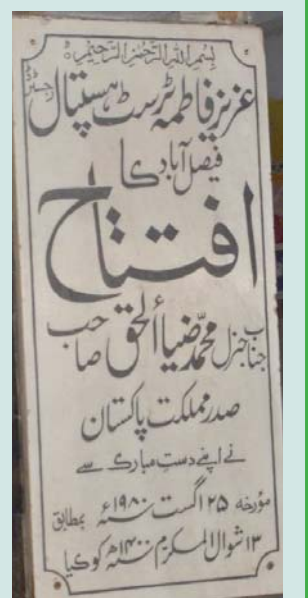 بسم اللہ الرحمٰن الرحیم
عزیز فاطمہ ٹرسٹ ہسپتال رجسٹرڈ
فیصل آباد کا
افتتاح
جناب جنرل محمد ضیاألحق صاحب
صدر مملکت پاکستان
نے اپنے دست مبارک سے
مؤرخہ ۲۵ اگست ۱۹۸۰ء بمطابق
۱۳ شوال المکرم ۱۴۰۰ھ کو کیا